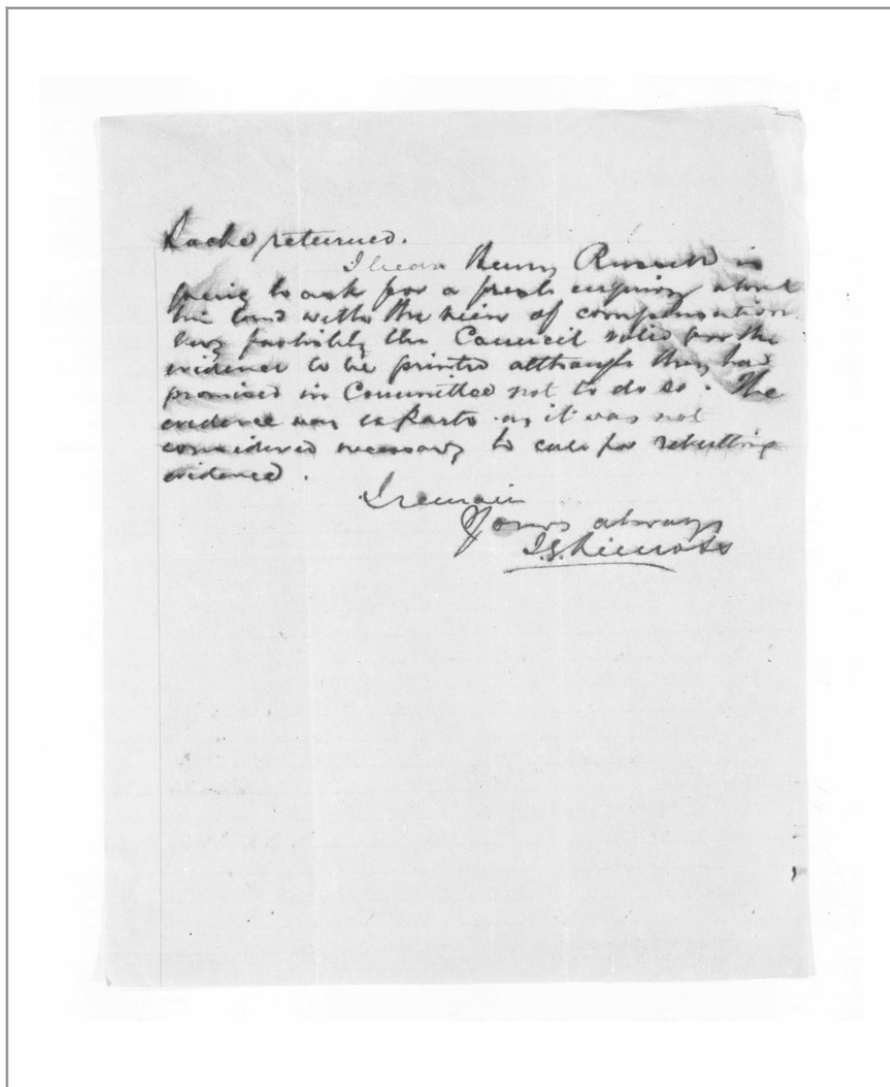 Locke returned.
I hear Henry Russell is
going to ask for a fresh enquiry about
his land with the view of compensation.
Very foolishly the Council voted for the
evidence to be printed although they had
promised in Committee not to do so. The
evidence was exparte as it was not
considered necessary to call for rebutting
evidence.
I remain
Yours always